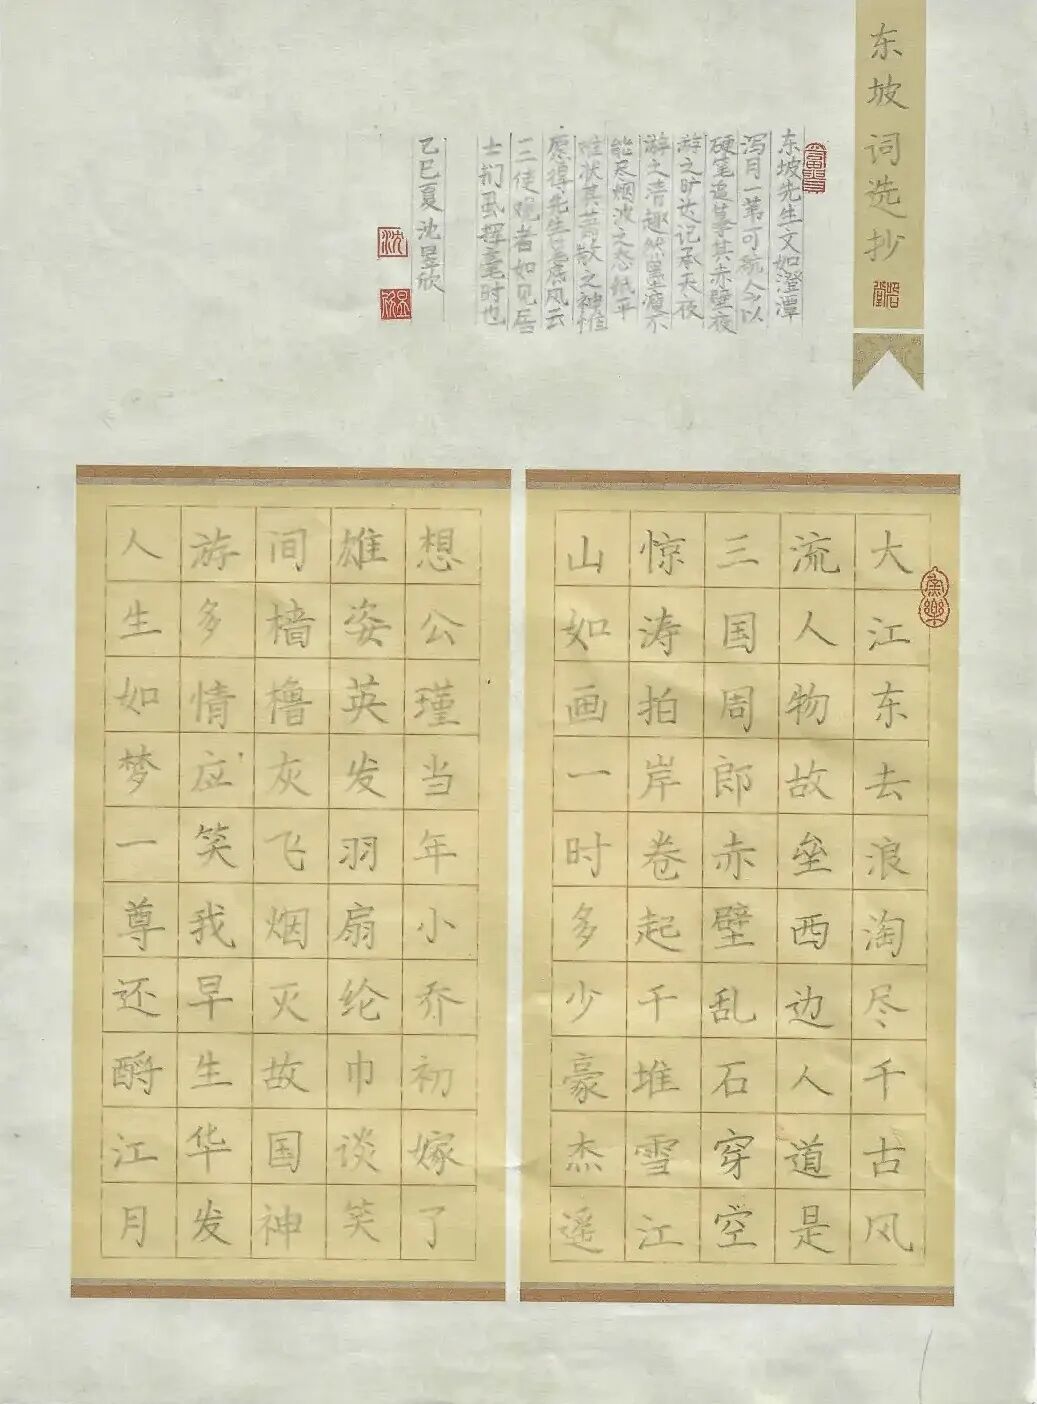 东坡词选抄
东坡先生文如澄潭
泻月一苇可航人以
硬笔追摹其赤壁夜
游之旷达记承天夜
游之清趣然墨渖不
能尽烟波之态纸平
难状其萧散之神惟
愿得先生笔底风云
二三使观者如见居
士扪虱挥毫时也
乙巳夏沈昱欣
沈
昱欣
大江东去浪淘尽千古风
流人物故垒西边人道是
三国周郎赤壁乱石穿空
惊涛拍岸卷起千堆雪江
山如画一时多少豪杰遥
想公瑾当年小乔初嫁了
雄姿英发羽扇纶巾谈笑
间樯橹灰飞烟灭故国神
游多情应笑我早生华发
人生如梦一尊还酹江月